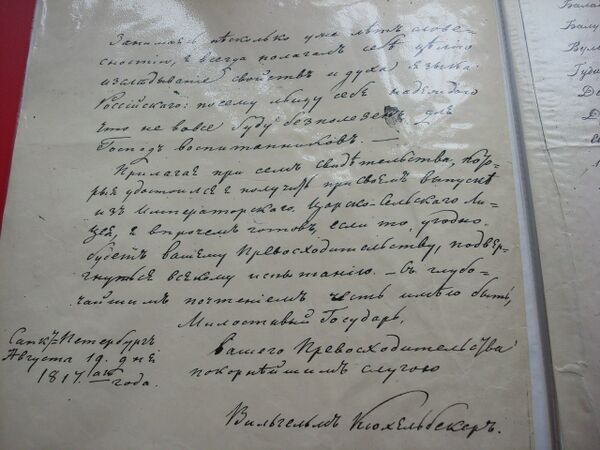 Занимаясь нѣсколько уже лѣтъ слове-
сностію, я всегда полагалъ себѣ цѣлію
изслѣдываніе свойствъ и духа языка
Россійскаго: посему льщу себѣ надеждою
что не вовсе буду безполезенъ для
Господъ воспитанниковъ. —
Прилагая при семъ свидѣтельства, кото-
рыя удостоился я получить при своемъ выпускѣ
изъ Императорскаго Царско-Сельскаго Ли-
цея, я впрочемъ готовъ, если то угодно
будетъ вашему Превосходительству, подвер-
гнуться всякому испытанію. — Съ глубо-
чайшимъ почтеніемъ честь имѣю быть,
Милостивый Государь,
вашего Превосходительства
покорнѣйшимъ слугою
Вильгельмъ Кюхельбекеръ.
Санкт-Петербургъ
Августа 19. дня
1817.го года.
Бала
Балу
Вуль
Гуди